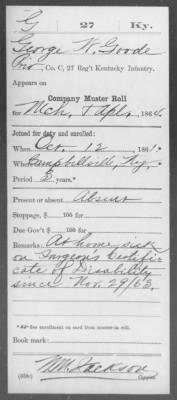 G 27 Ky.
George W. Goode
Pvt., Co. C, 27 Reg't Kentucky Infantry.
Appears on
Company Muster Roll
for Mch. & Apl., 1864.
Joined for duty and enrolled:
When Oct. 12, 1861.
Where Campbellsville, Ky.
Period 3 years.*
Present or absent Absent
Stoppage, $ 100 for
Due Gov't $ 100 for
Remarks: At home sick
on Surgeon's Certifi-
cate of Disability
since Nov. 29/63.
*See enrollment on card from muster-in roll.
Book mark:
Jackson
(858c) Copyist.